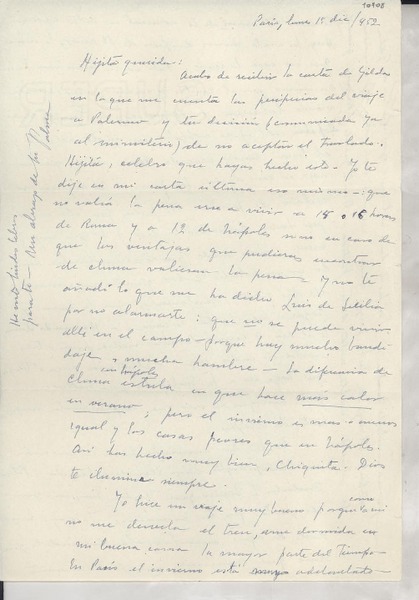 10908
Paris, lunes 15 dic/952
Hijita querida:
Acabo de recibir la carta de Gilda
en la que me cuenta las peripecias del viaje
a Palermo y tu decisión (comunicada ya
al ministerio) de no aceptar el traslado.
Hijita, celebro que hayas hecho esto. Yo te
dije en mi carta última eso mismo: que
no valía la pena irse a vivir a 15 o 16 horas
de Roma y a 12 de Nápoles sino en caso de
que las ventajas que pudieras encontrar
de clima valieran la pena. Y no te
añadí lo que me ha dicho Luis de Sicilia
por no alarmarte: que no se puede vivir
allí en el campo porque hay mucho bandi-
daje y mucha hambre. La diferencia de
clima con Nápoles estriba en que hace más calor
en verano; pero el invierno es mas o menos
igual y las casas peores que en Nápoles.
Así has hecho muy bien, Chiquita. Dios
te ilumine siempre.
Yo hice un viaje muy bueno porque como a mi
no me desvela el tren, dormida en
mi buena cama la mayor parte del tiempo.
En París el invierno está adelantado
para ti. Un abrazo de tu Palma